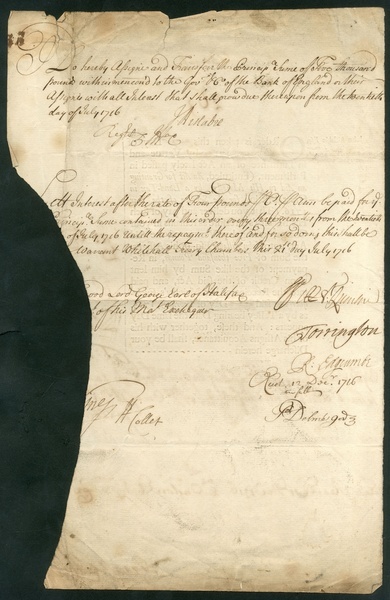 Do hereby Assigne and Transfer the Principl Sume of Five thousand
pounds within menconed to the Govr & Co of the Bank of England or their
Assignes with all Interest that shall grow due thereupon from the twentieth
day of July 1716
Let Interest after the rate of Four pounds P Ct P Ann be paid for ye
Sume contained in this order every three months from the twentieth
of July 1716 untill the repaymt thereof and for so doing this shall be
Warrant Whitehall Treary Chambers this 21t day July 1716
Lord George Earl of Halifax
of his Mats Exchequer
Torrington
R: Edgcumbe
Recd 12 Decr. 1716
in full
Collet